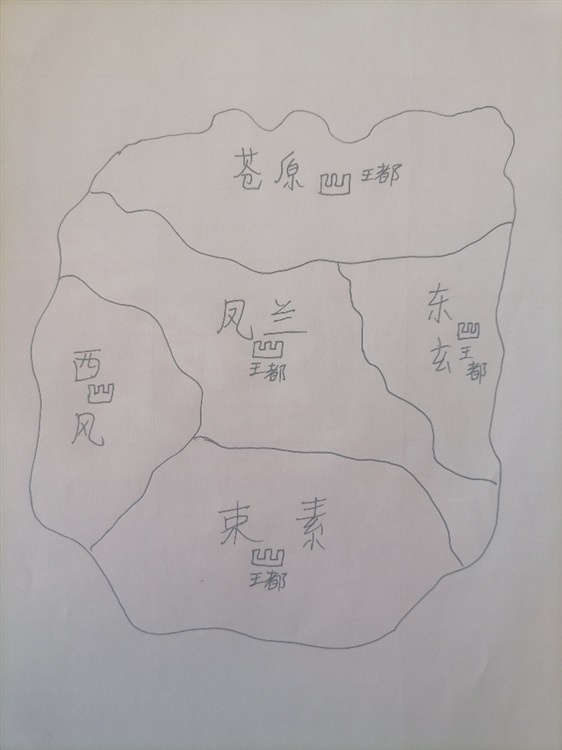 苍原
王都
凤兰
王都
东玄
王都
西风
束素
王都